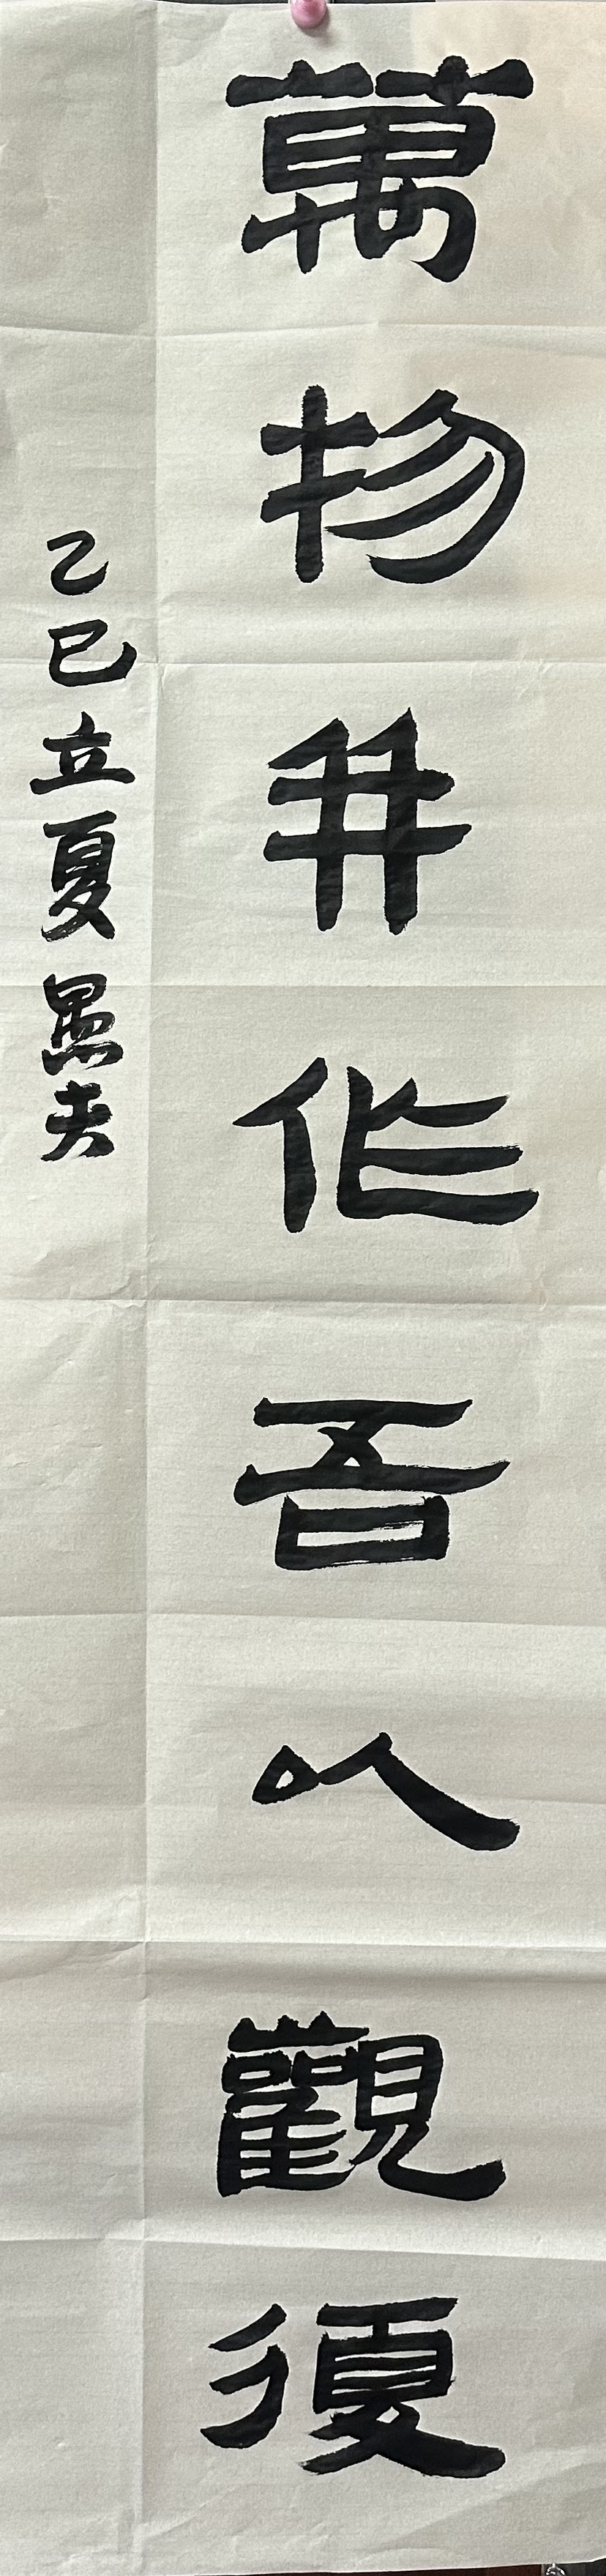 萬物并作吾以觀復
乙巳立夏愚夫